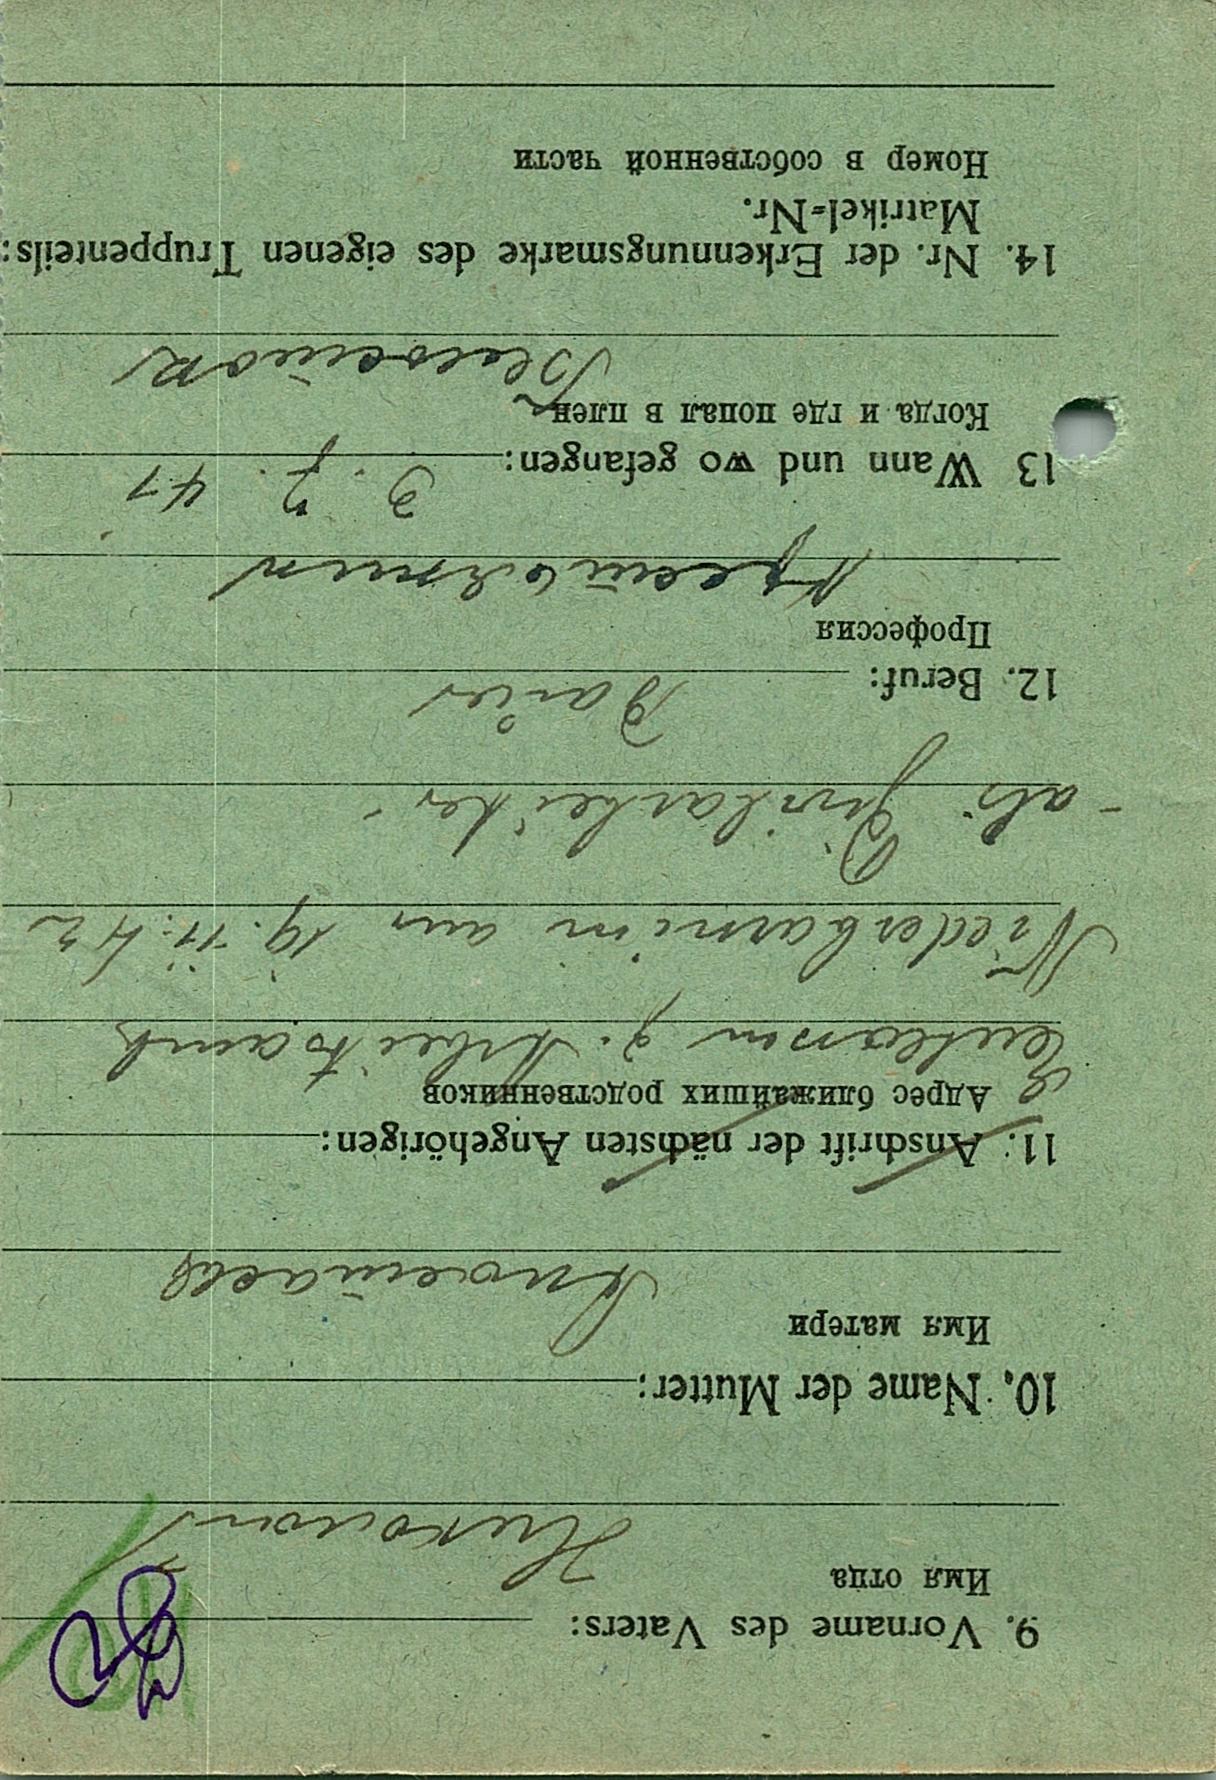 9. Vorname des Vaters:
Имя отца
10. Name der Mutter:
Имя матери
Анастасия
11. Anschrift der nächsten Angehörigen:
Адрес ближайших родственников
Entlassen z. Arbeitsamt
Niederbarnim am 19.11.42
- als Zivilarbeiter -
12. Beruf: Bauer
Профессия
Крестьянин
13 Wann und wo gefangen: 3. 7. 41
Когда и где попал в плен
Белосток
14. Nr. der Erkennungsmarke des eigenen Truppenteils:
Matrikel=Nr.
Номер в собственной части